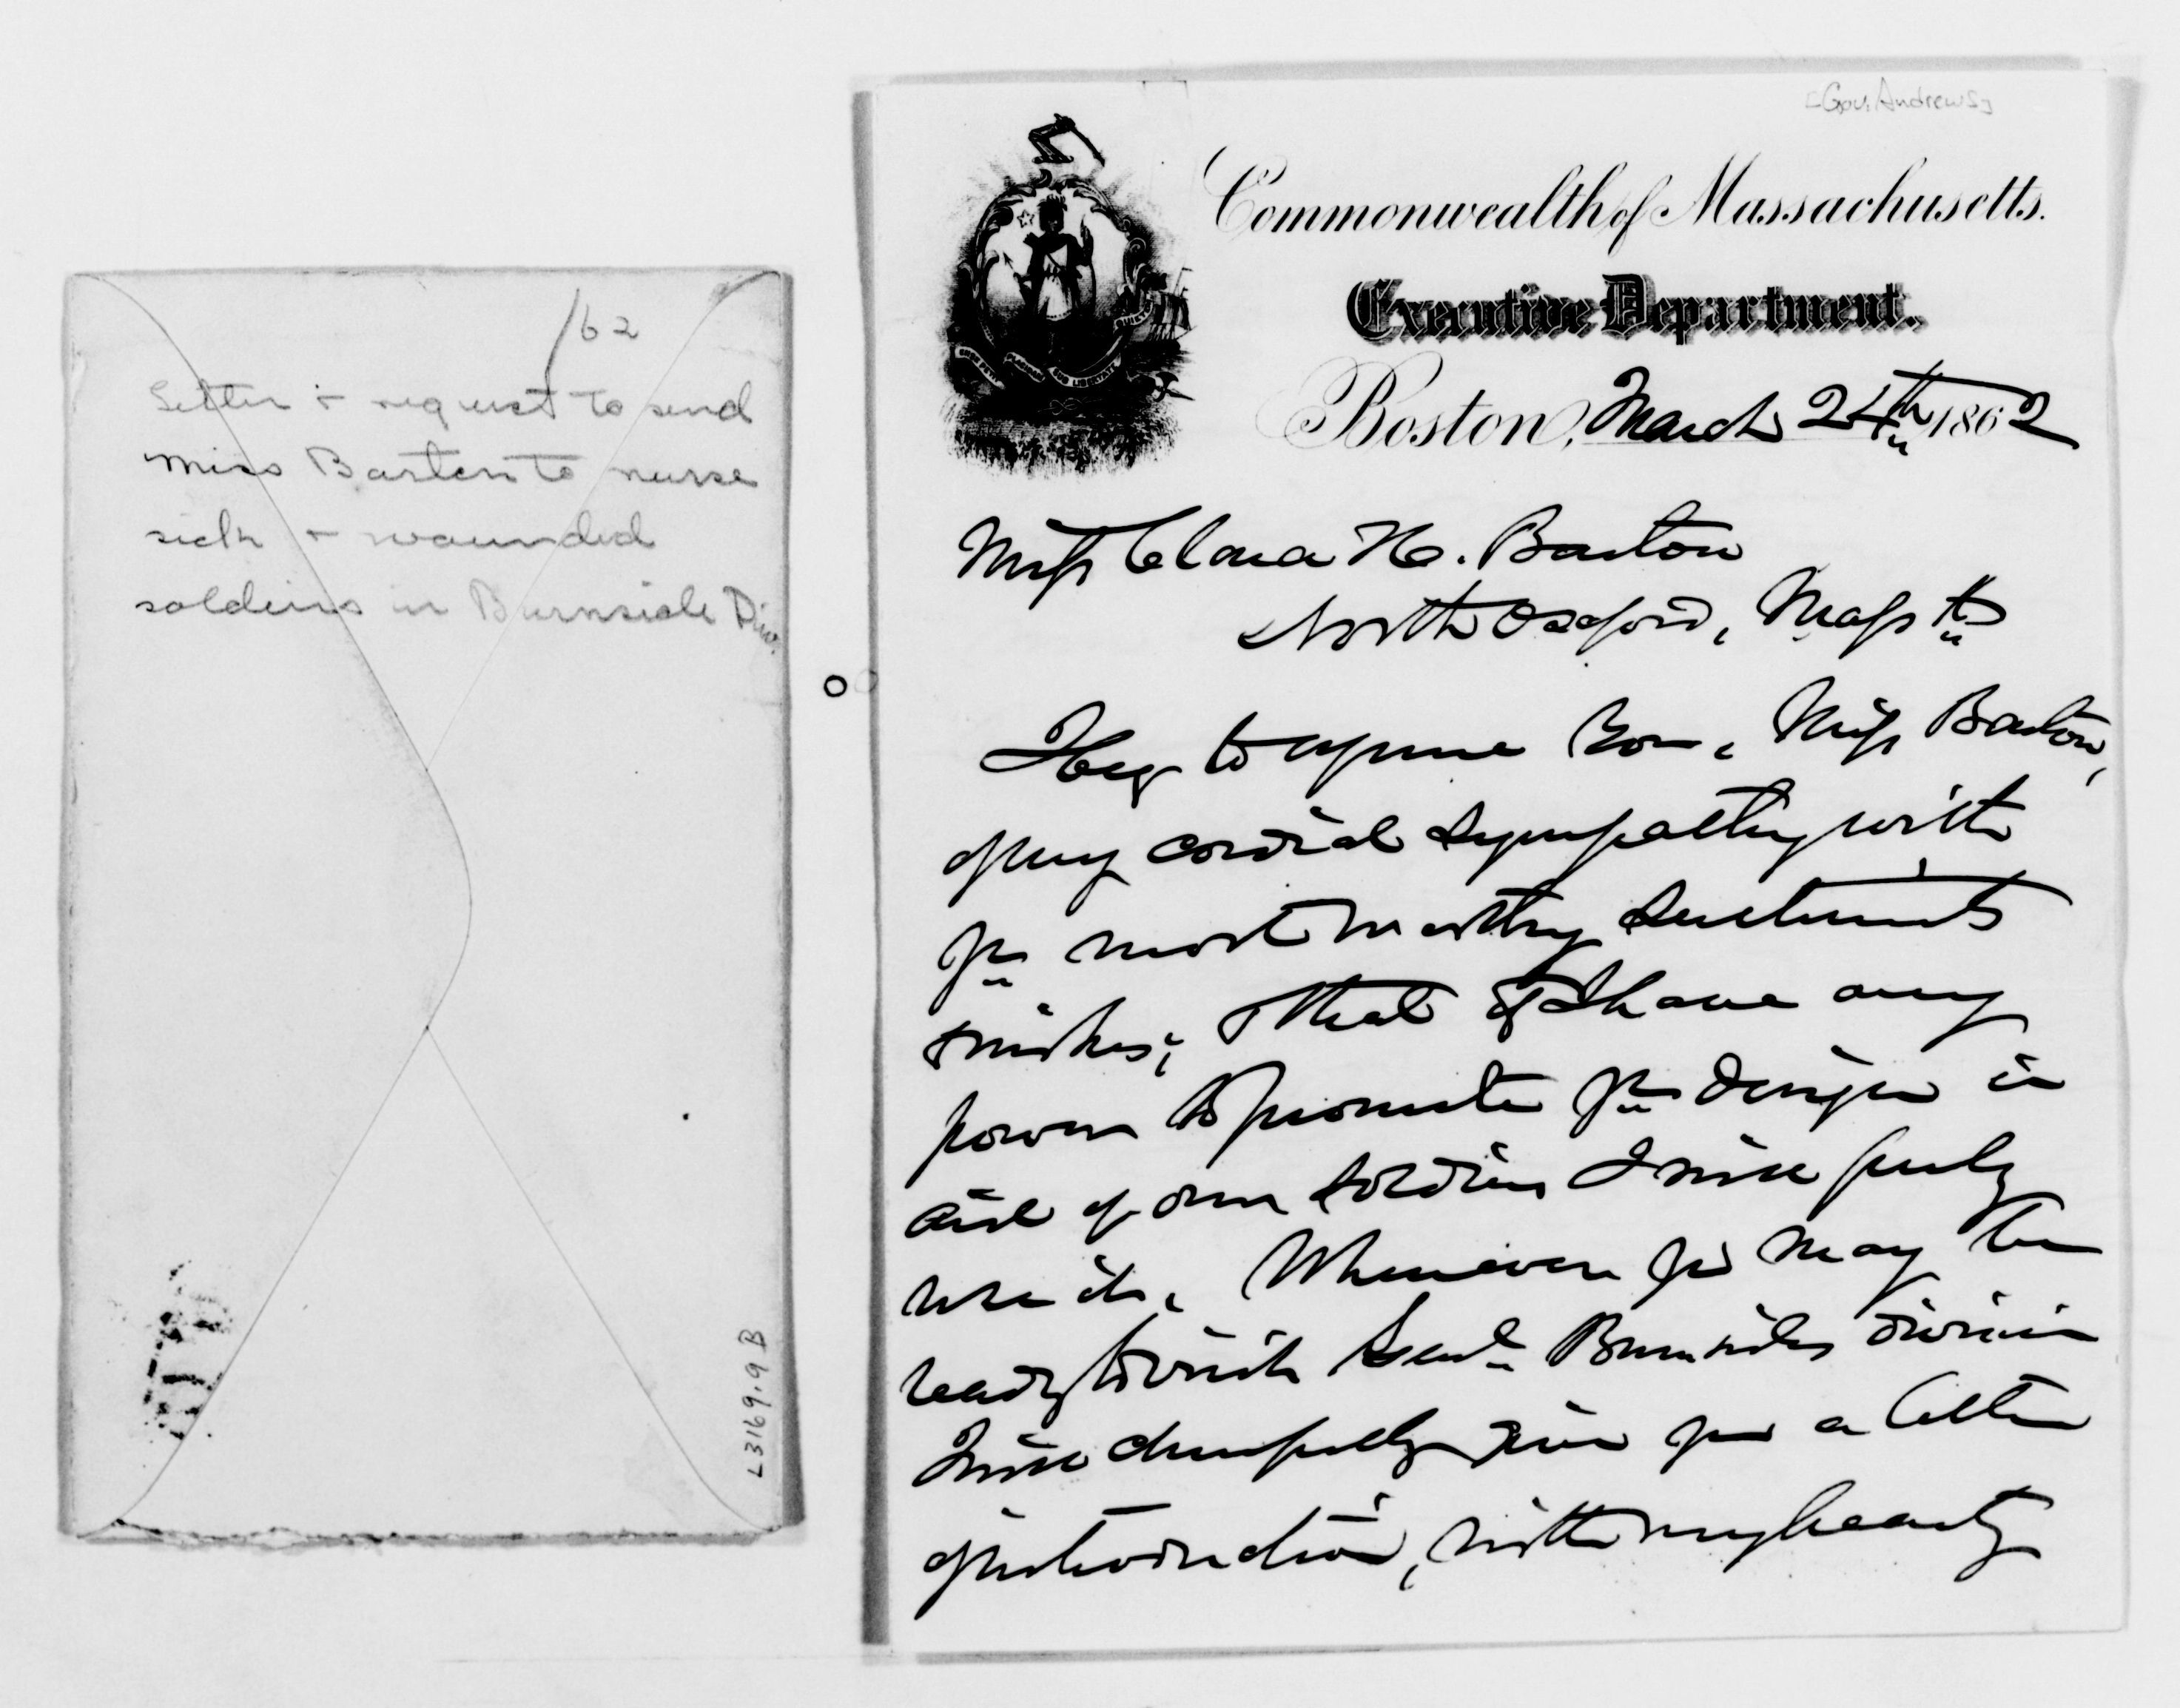 /62
Letter & request to send
Miss Barton to nurse
sick & wounded
soldiers in Burnside Div.
L3169.9 B
[Gov. Andrews]
Commonwealth of Massachusetts.
Executive Department.
Boston, March 24th, 1862
Miss Clara H. Barton
North Oxford, Massts
I beg to assure you, Miss Barton,
of my cordial sympathy with
yr most worthy sentiments
& wishes; & that if I have any
power to promote yr design in
aid of our soldiers I will surely
use it. Whenever yo may be
ready to visit Genl Burnsides division
I will cheerfully give yo a letter
of introduction, with my hearty